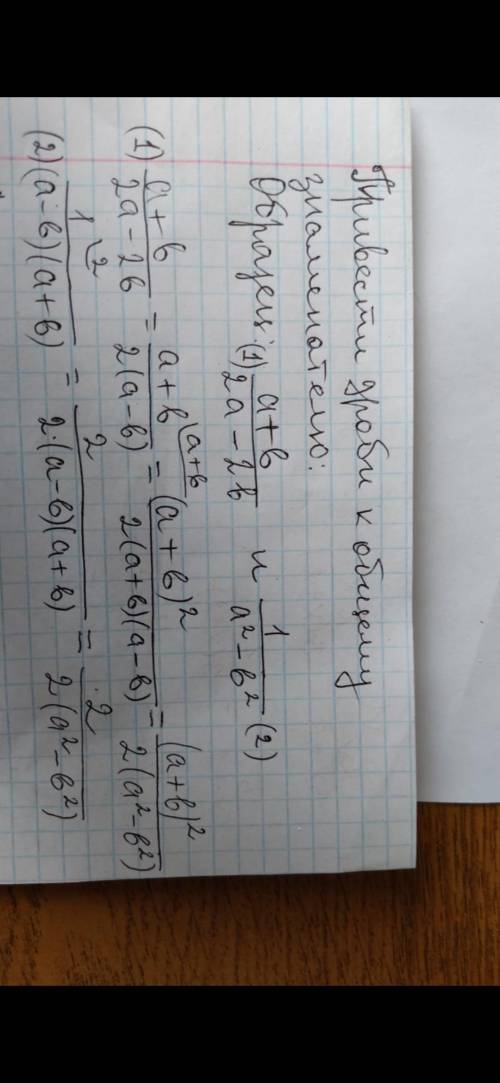 Привести дроби к общему
знаменателю:
Образец: (1) a+b/2a-2b и 1/a²-b² (2)
(1) a+b/2a-2b = a+b\a+b/2(a-b) = (a+b)²/2(a+b)(a-b) = (a+b)²/2(a²-b²)
(2) 1\2/(a-b)(a+b) = 2/2·(a-b)(a+b) = 2/2(a²-b²)